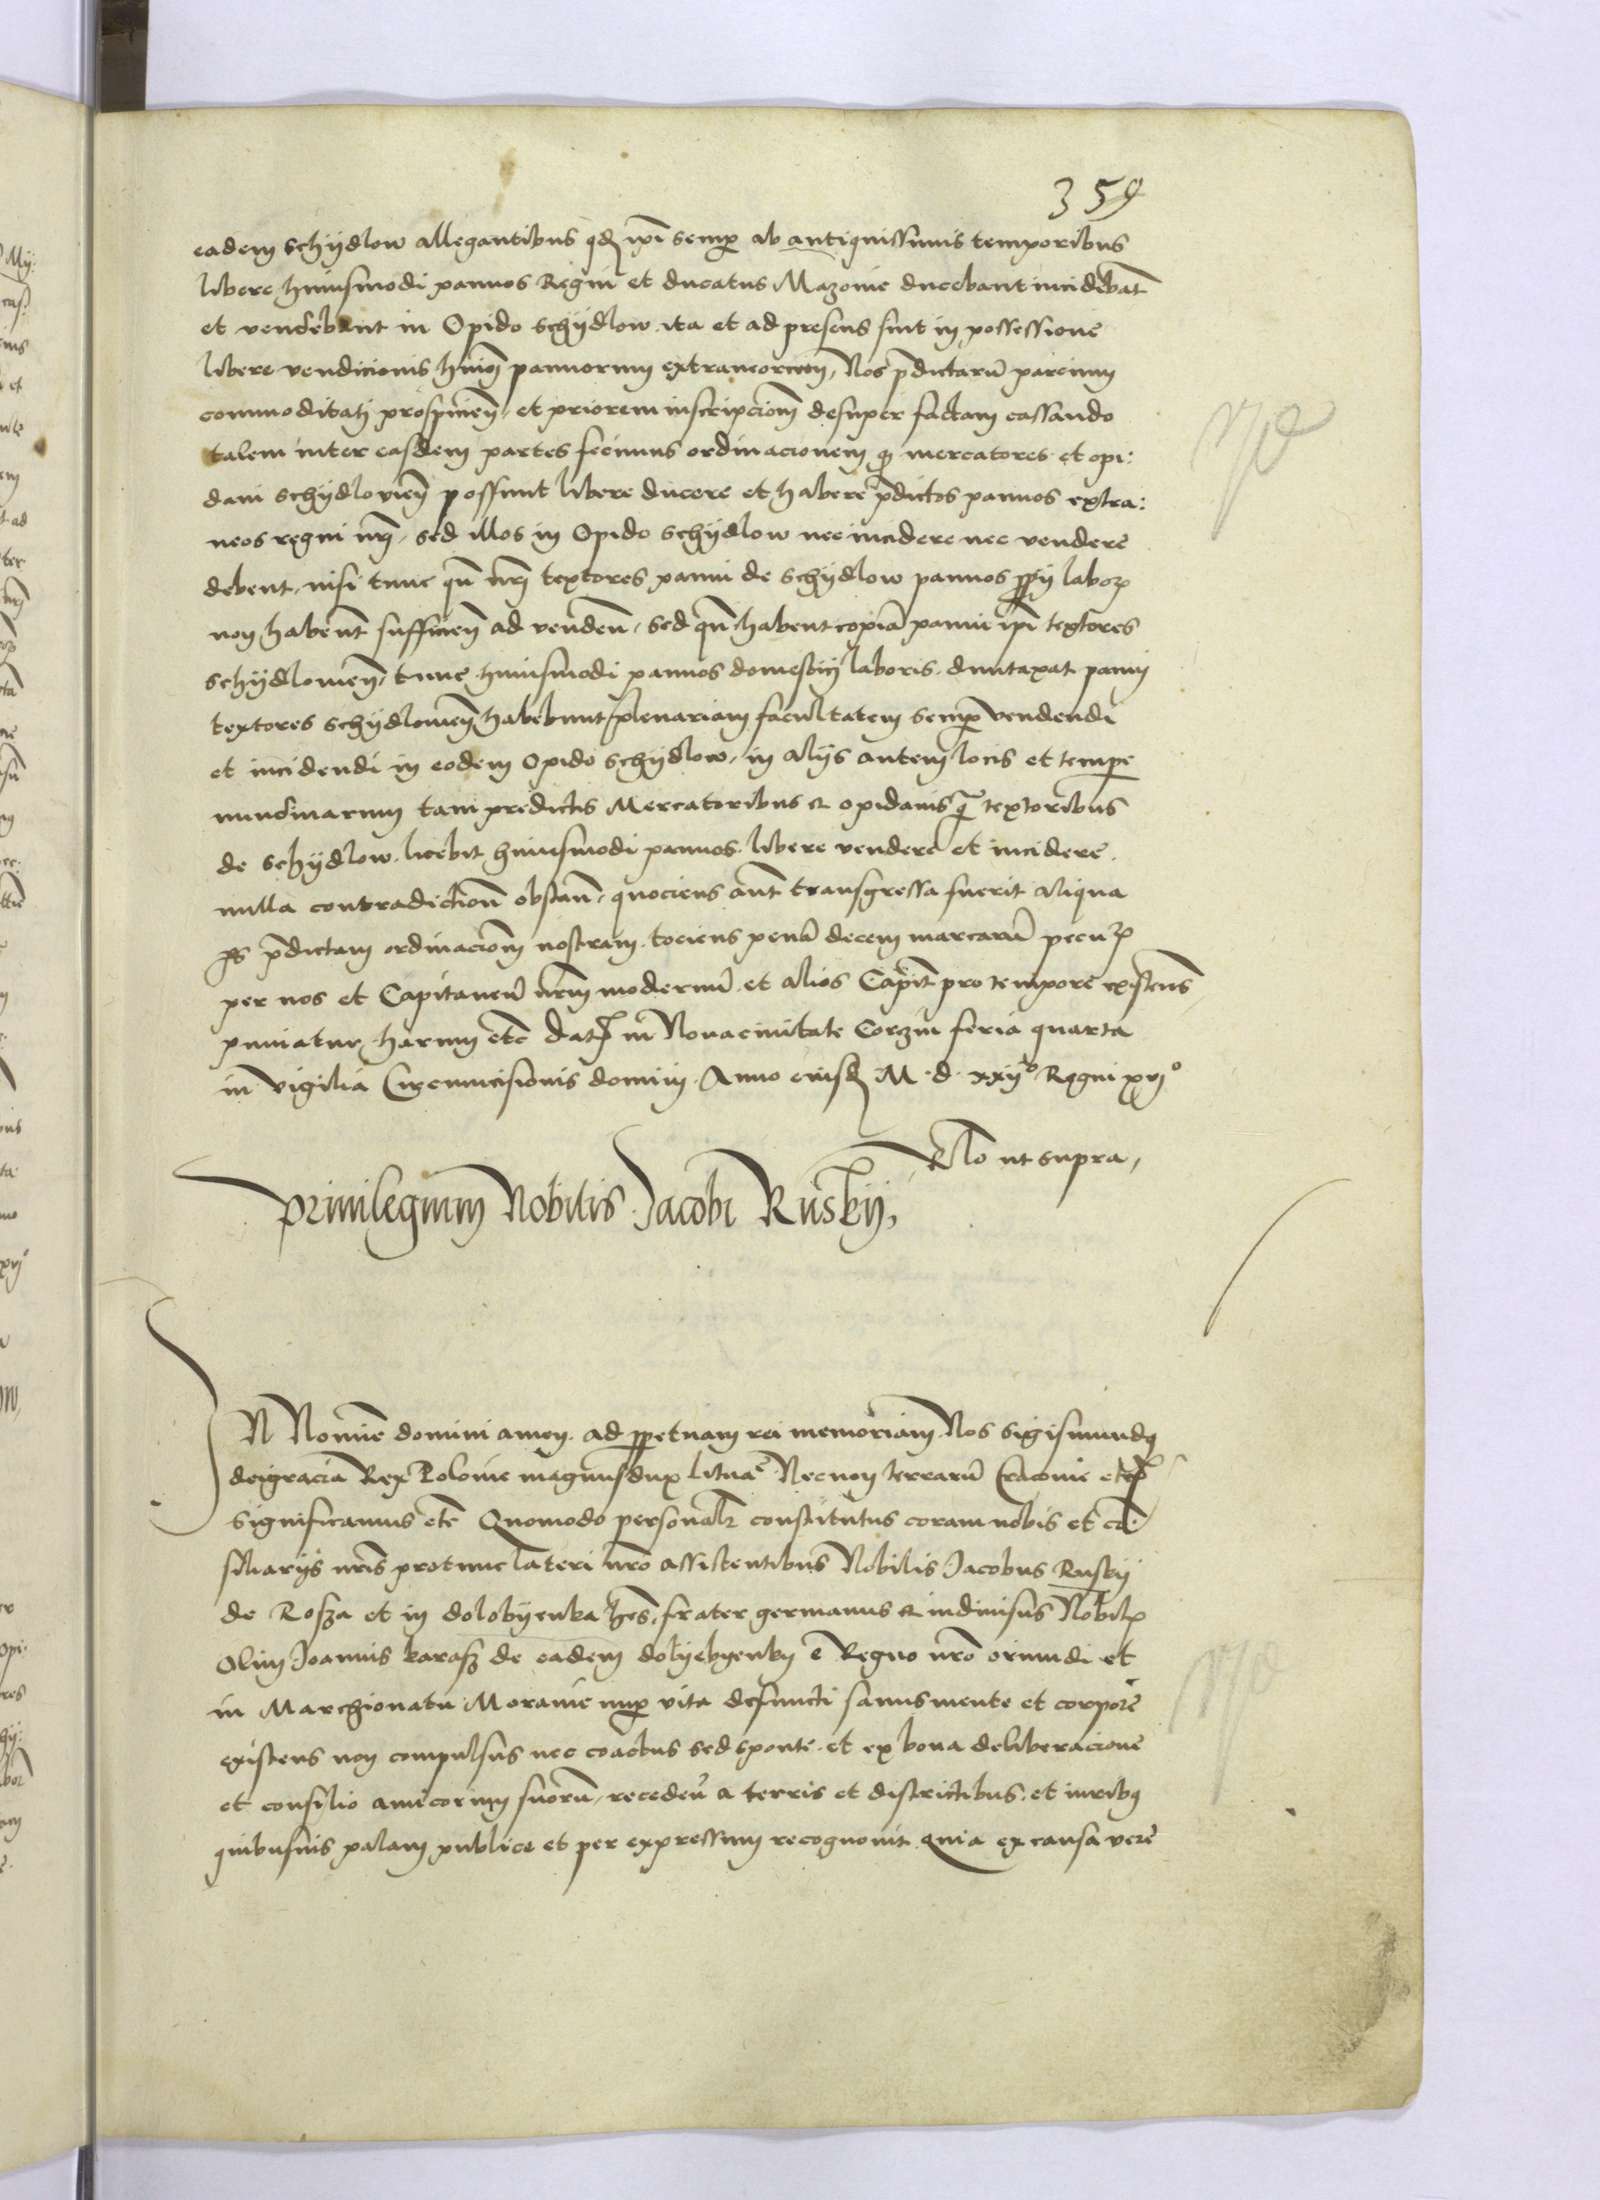 359
eadem schÿdlow allegantibus qd ipi semp ab antiquissimis temporibus
libere huiusmodi pannos Regni et ducatus Mazovie ducebant incidebāt
et vendebant in Opido schÿdlow ita et ad presens sint in possessione
libere vendicionis pannorum extraneorum, Nos pdictarū parcium
commoditati prospicien et priorem inscripcionem desuper factam cassando
talem inter easdem partes fecimus ordinacionem qz mercatores et opi:
dani schÿdlovien possunt libere ducere et habere pdictos pannos extra:
neos regni nri, sed illos in Opido schÿdlow nec incidere nec vendere
debent, nisi tunc qn nri textores panni de schÿdlow pannos pprij labor
non habent sufficien ad venden, sed qn habent copiā panni ipi textores
schÿdlovien, tunc huiusmodi pannos domestici laboris duntaxat panni
textores schÿdlovien habebunt plenariam facultatem semp vendendi
et incidendi in eodem Opido schÿdlow, in alijs autem locis et tempe
nundinarum tam predictis Mercatoribus et opidanis q textoribus
de schÿdlow licebit huiusmodi pannos libere vendere et incidere
nulla contradiction obstan, quociens aut transgressa fuerit aliqua
ps pdictam ordinacionem nostram tociens pena decem marcarū pecun
per nos et Capitaneū nrm modernū et alios Capit pro tempore existens
puniatur, harum etc Dat in Nova civitate Corzin feria quarta
in vigilia Circumcisionis domini Anno eiusd M d xxijº Regni xvjº
Rlo ut supra,
Privilegium Nobilis Jacobi Ruskÿ,
IN Nomine domini amen ad ppetuam rei memoriam Nos Sigismundus
dei gracia Rex Polonie magnus dux Lituaē Necnon terrarū Cracovie etc
significamus etc Quomodo personalr constitutus coram nobis et con
siliarijs nris protunc lateri nro assistentibus Nobilis Jacobus Ruskÿ
de Rosza et in dolobÿenka hēs, frater germanus et indivisus Nobil
olim Joannis karasz de eadem e Regno nro oriundi et
in Marchionatu Moravie nup vita defuncti sanus mente et corpore
existens non compulsus nec coactus sed sponte et ex bona deliberacione
et consilio amicorum suorū, receden a terris et districtibus et iuribus
quibusvis palam publice et per expressum recognovit Quia ex causa vere